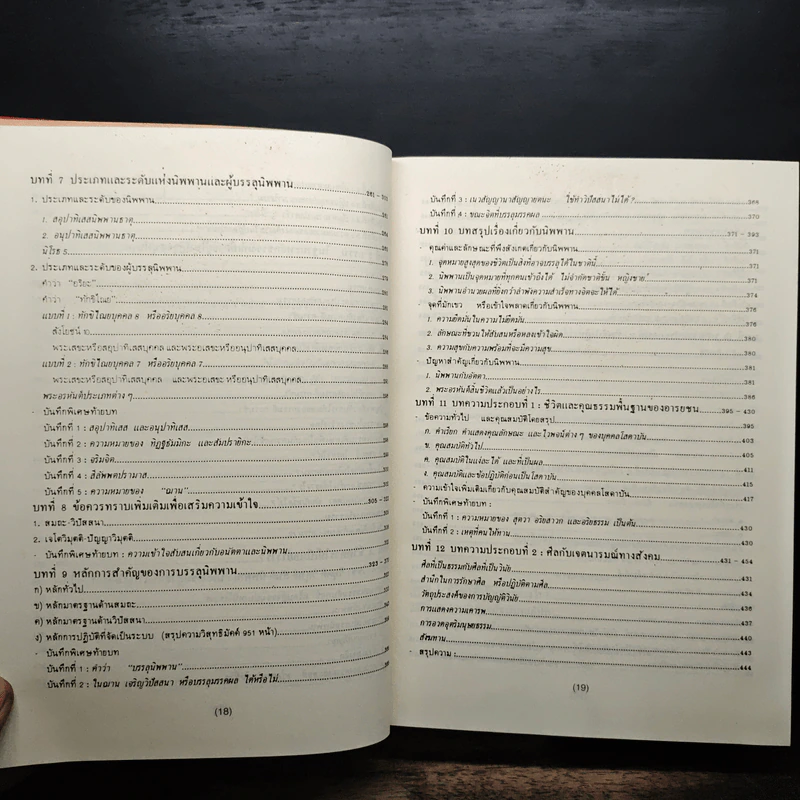 บทที่ 7 ประเภทและระดับแห่งนิพพานและผู้บรรลุนิพพาน
1. ประเภทและระดับของนิพพาน
1. สอุปาทิเสสนิพพานธาตุ
2. อนุปาทิเสสนิพพานธาตุ
นิโรธ 5
2. ประเภทและระดับของผู้บรรลุนิพพาน
คำว่า "อริยะ"
คำว่า "ทักขิไณย"
แบบที่ 1 : ทักขิไณยบุคคล 8 หรืออริยบุคคล 8
สังโยชน์ 10
พระเสขะหรือสอุปาทิเสสบุคคล และพระอเสขะหรืออนุปาทิเสสบุคคล
แบบที่ 2 : ทักขิไณยบุคคล 7 หรืออริยบุคคล 7
พระเสขะหรือสอุปาทิเสสบุคคล และพระอเสขะ หรืออนุปาทิเสสบุคคล
พระอรหันต์ประเภทต่าง ๆ
- บันทึกพิเศษท้ายบท
บันทึกที่ 1 : สอุปาทิเสส และอนุปาทิเสส
บันทึกที่ 2 : ความหมายของ ทิฏฐธัมมิกะ และสัมปรายิกะ
บันทึกที่ 3 : จริมจิต
บันทึกที่ 4 : สีลัพพตปรามาส
บันทึกที่ 5 : ความหมายของ "ฌาน"
บทที่ 8 ข้อควรทราบเพิ่มเติมเพื่อเสริมความเข้าใจ 305 -
1. สมถะ-วิปัสสนา
2. เจโตวิมุตติ-ปัญญาวิมุตติ
- บันทึกพิเศษท้ายบท : ความเข้าใจสับสนเกี่ยวกับอนัตตาและนิพพาน
บทที่ 9 หลักการสำคัญของการบรรลุนิพพาน 323 -
ก) หลักทั่วไป
ข) หลักมาตรฐานด้านสมถะ
ค) หลักมาตรฐานด้านวิปัสสนา
ง) หลักการปฏิบัติที่จัดเป็นระบบ (สรุปความวิสุทธิมัคค์ 951 หน้า)
- บันทึกพิเศษท้ายบท
บันทึกที่ 1 : คำว่า "บรรลุนิพพาน"
บันทึกที่ 2 : ในฌาน เจริญวิปัสสนา หรือบรรลุมรรคผล ได้หรือไม่
(18)
บันทึกที่ 3 : เนวสัญญานาสัญญายตนะ ใช้ทำวิปัสสนาไม่ได้ ? 368
บันทึกที่ 4 : ขณะจิตที่บรรลุมรรคผล 370
บทที่ 10 บทสรุปเรื่องเกี่ยวกับนิพพาน 371 - 393
- คุณค่าและลักษณะที่พึงสังเกตเกี่ยวกับนิพพาน 371
1. จุดหมายสูงสุดของชีวิตเป็นสิ่งที่อาจบรรลุได้ในชาตินี้ 371
2. นิพพานเป็นจุดหมายที่ทุกคนเข้าถึงได้ ไม่จำกัดชาติชั้น หญิงชาย 371
3. นิพพานอำนวยผลที่ยิ่งกว่าลำพังความสำเร็จทางจิตจะให้ได้ 374
- จุดที่มักเขว หรือเข้าใจพลาดเกี่ยวกับนิพพาน 376
1. ความยึดมั่นในความไม่ยึดมั่น 376
2. ลักษณะที่ชวนให้สับสนหรือหลงเข้าใจผิด 380
3. ความสุขกับความพร้อมที่จะมีความสุข 380
- ปัญหาสำคัญเกี่ยวกับนิพพาน
1. นิพพานกับอัตตา
2. พระอรหันต์สิ้นชีวิตแล้วเป็นอย่างไร 388
บทที่ 11 บทความประกอบที่ 1 : ชีวิตและคุณธรรมพื้นฐานของอารยชน 395 - 430
- ข้อความทั่วไป และคุณสมบัติโดยสรุป 395
ก. คำเรียก คำแสดงคุณลักษณะ และไวพจน์ต่าง ๆ ของบุคคลโสดาบัน
ข. คุณสมบัติทั่วไป 403
ค. คุณสมบัติในแง่ละได้ และที่เป็นผล
ง. คุณสมบัติและข้อปฏิบัติก่อนเป็นโสดาบัน 411
- ความเข้าใจเพิ่มเติมเกี่ยวกับคุณสมบัติสำคัญของบุคคลโสดาบัน 417
- บันทึกพิเศษท้ายบท :
บันทึกที่ 1 : ความหมายของ สุตวา อริยสาวก และอริยธรรม เป็นต้น 430
บันทึกที่ 2 : เหตุที่คนให้ทาน 430
บทที่ 12 บทความประกอบที่ 2 : ศีลกับเจตนารมณ์ทางสังคม 431 - 454
ศีลที่เป็นธรรมกับศีลที่เป็นวินัย
สำนึกในการรักษาศีล หรือปฏิบัติตามศีล
วัตถุประสงค์ของการบัญญัติวินัย 434
การแสดงความเคารพ 436
การอวดอุตริมนุษยธรรม 437
สังฆทาน 440
- สรุปความ : 443
444
(19)